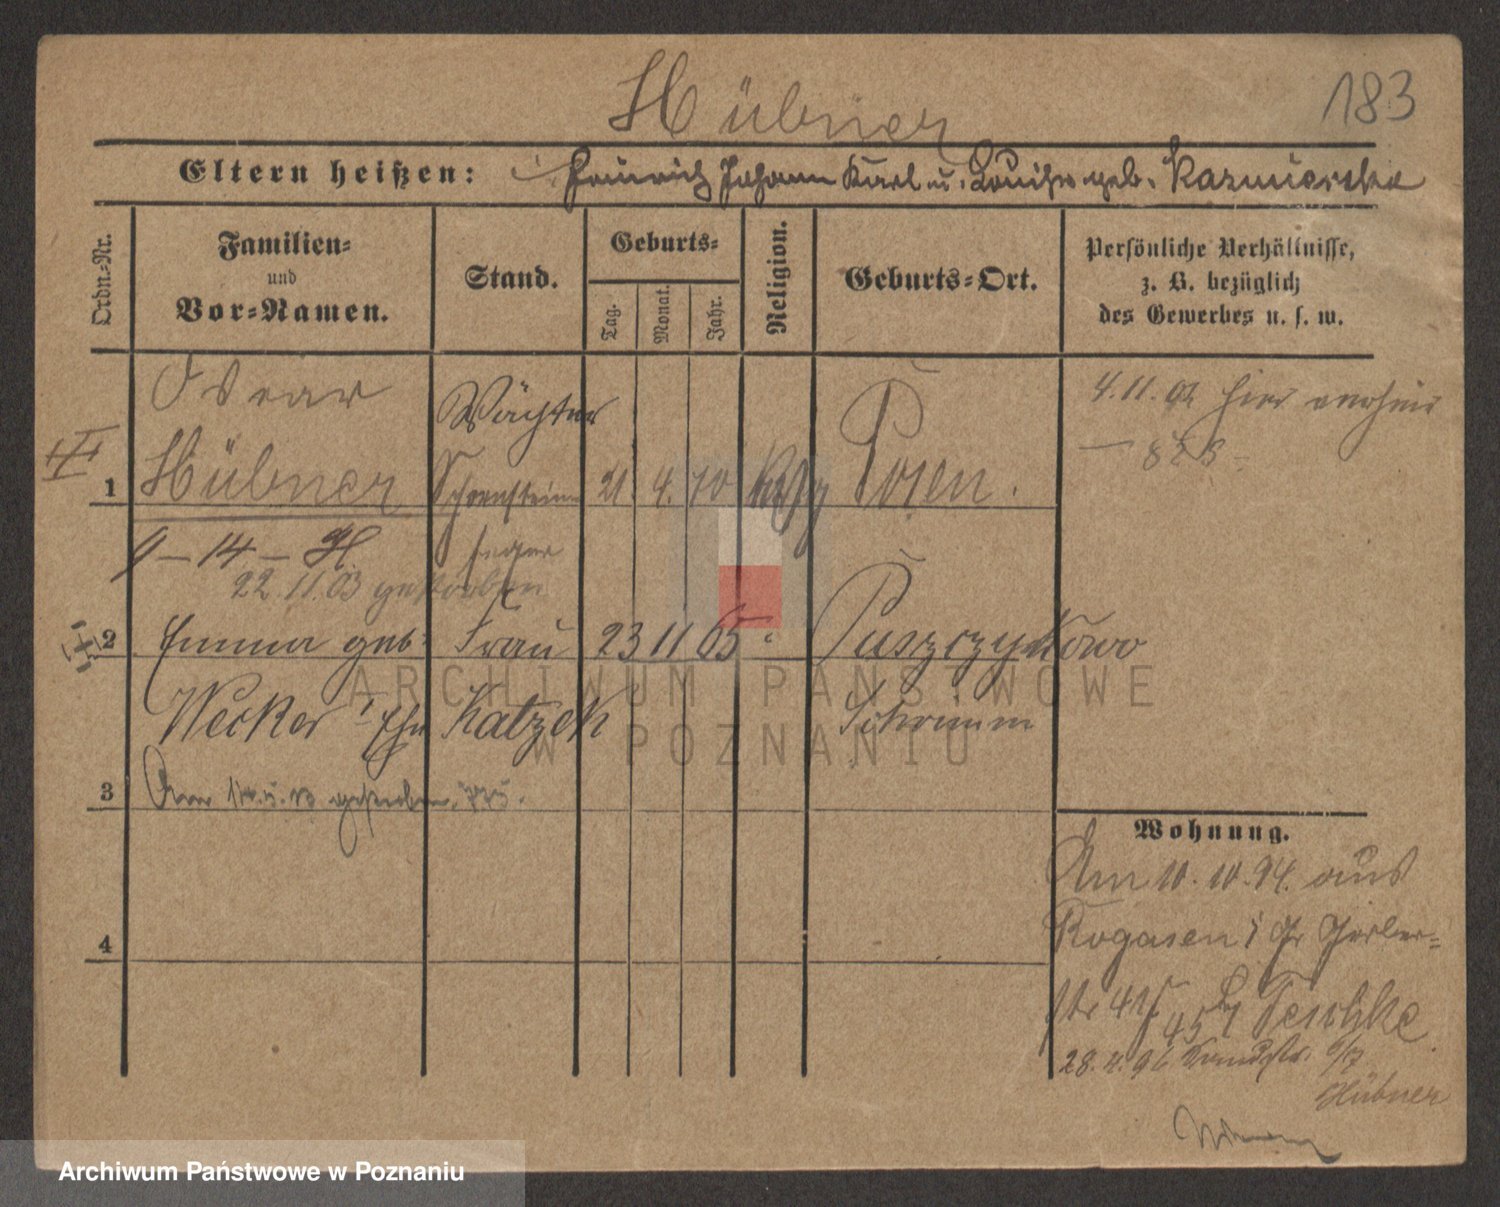 Hübner
183
Eltern heißen: Heinrich Johann Karl u. Louise geb. Kazmierska
Ordn.=Nr.
Familien=
und
Vor=Namen.
Stand.
Geburts=
Tag.
Monat.
Jahr.
Religion.
Geburts=Ort.
Persönliche Verhältnisse,
z. B. bezüglich
des Gewerbes u. s. w.
Oskar
Wächter
4.11.02 hier
1
Hübner
Schornstein
21. 4. 70
Posen.
9 — 14 — H
feger
22.11.03 gestorben
2
Emma geb.
Frau
23 11 65
Puszczykowo
Wecker
Katzek
Schrimm
3
Am gestorben
Wohnung.
Am 10.10.94. aus
Rogasen Gr Gerber=
4
str 41
45 Teschke
28.4.96
Hübner
ARCHIWUM PAŃSTWOWE
W POZNANIU
Archiwum Państwowe w Poznaniu